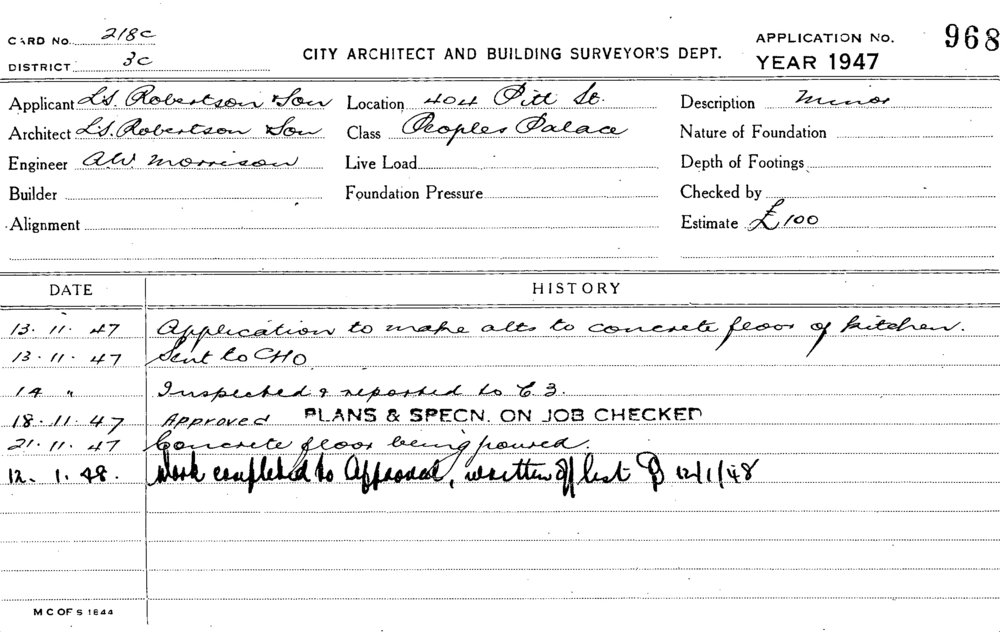 CARD No. 218c
DISTRICT 3c
CITY ARCHITECT AND BUILDING SURVEYOR'S DEPT.
APPLICATION No. 968
YEAR 1947
Applicant L.S. Robertson & Son Location 404 Pitt St. Description Minor
Architect L.S. Robertson & Son Class Peoples Palace Nature of Foundation
Engineer A.W. Morrison Live Load Depth of Footings
Builder Foundation Pressure Checked by
Alignment Estimate £100
DATE HISTORY
13.11.47 Application to make alts to concrete floor of kitchen.
13.11.47 Sent to CHO
14 " Inspected & reported to C.3.
18.11.47 Approved PLANS & SPECN. ON JOB CHECKED
21.11.47 Concrete floor being poured.
12.1.48. Work completed to Approval, written off list 12/1/48
M C OF S 1844